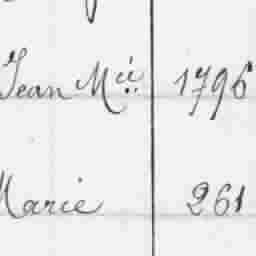 Jean M.ie 1796
Marie 261